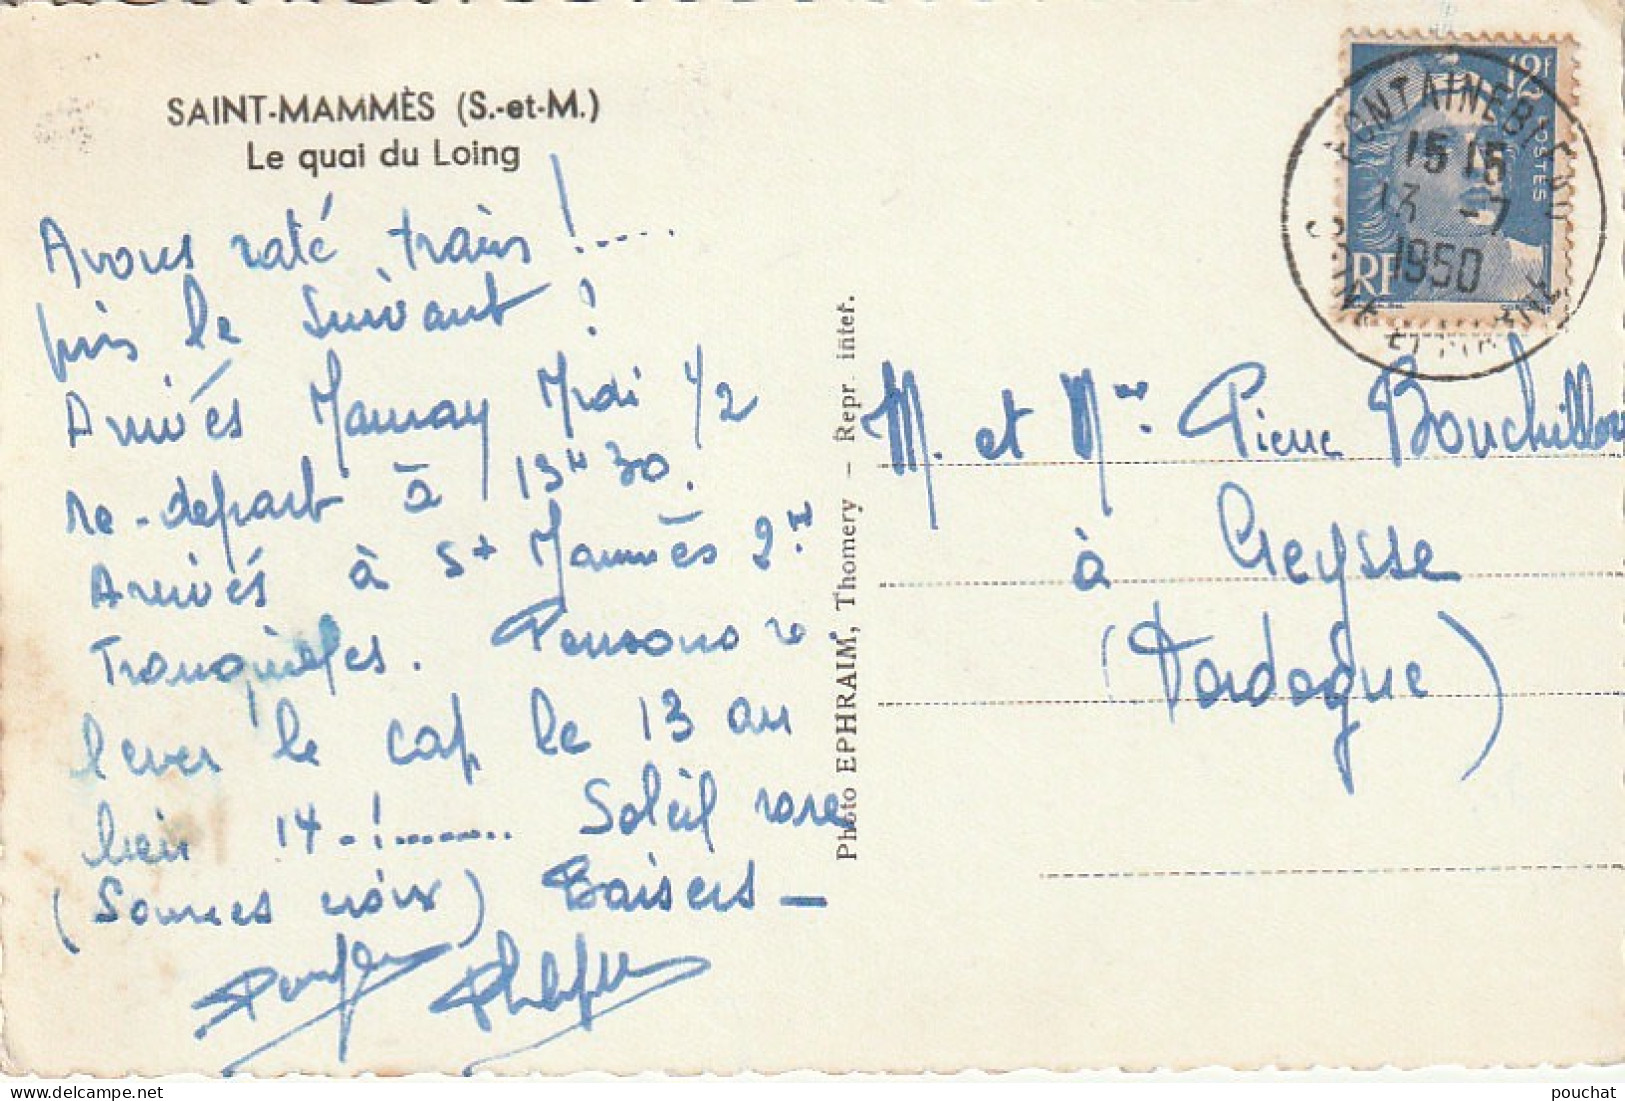 SAINT-MAMMÈS (S.-et-M.)
Le quai du Loing
Avons raté train !.....
pris le suivant !
Arrivés Mdi 1/2
re-depart à 13H30.
Arrivés à St Mammès
Tranquilles. Pensons
lever le cap le 13 au
lieu 14-!........ Soleil rare
(Sommes noirx) Baisers -
12F
POSTES
RF
FONTAINEBLEAU
15 15
13 -7
1950
SEINE ET MARNE
M. et Mme Pierre Bouchillou
à Creysse
(Dordogne)
Photo EPHRAIM, Thomery - Repr. inter.
pouchat